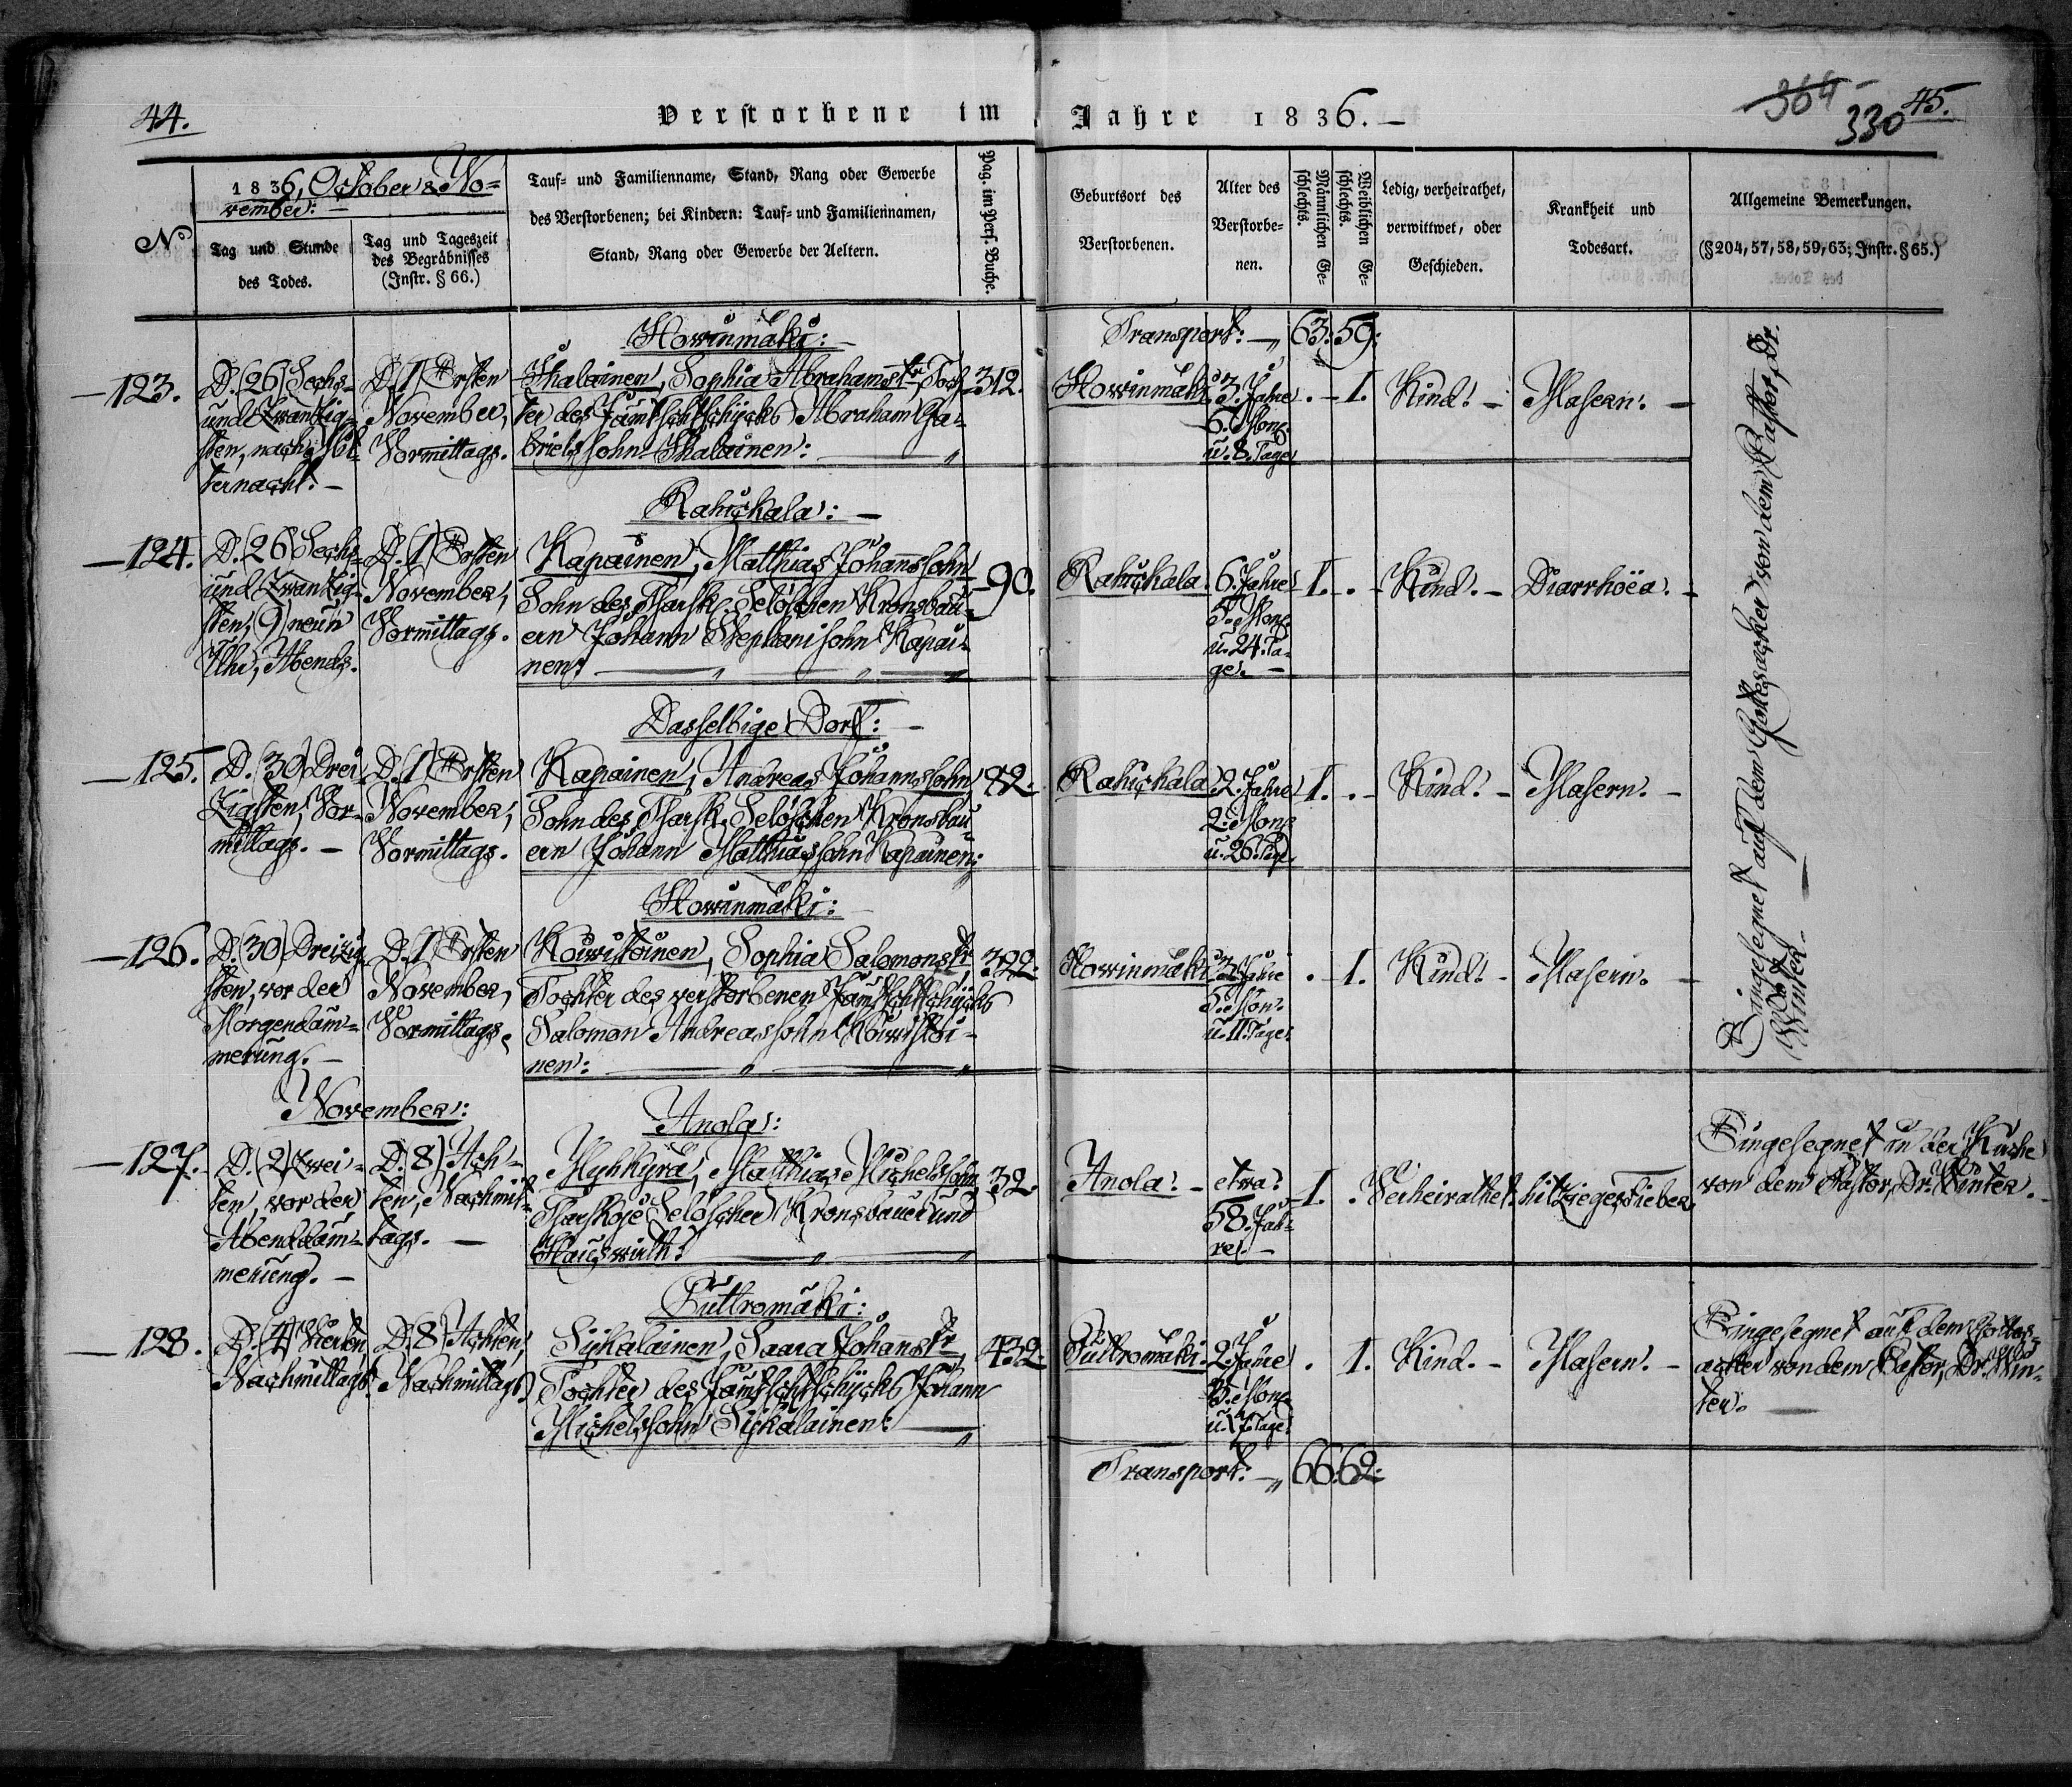 44.
Verstorbene im Jahre 1836. —
364 —
330
45.
No
1836, October & No=
vember: —
Tag und Stunde
des Todes.
Tag und Tageszeit
des Begräbnisses
(Instr. § 66.)
Tauf= und Familienname, Stand, Rang oder Gewerbe
des Verstorbenen; bei Kindern: Tauf= und Familiennamen,
Stand, Rang oder Gewerbe der Aeltern.
Pag. im Pers. Buche.
Geburtsort des
Verstorbenen.
Alter des
Verstorbe=
nen.
Männlichen Ge=
schlechts.
Weiblichen Ge=
schlechts.
Ledig, verheirathet,
verwittwet, oder
Geschieden.
Krankheit und
Todesart.
Allgemeine Bemerkungen.
(§ 204, 57, 58, 59, 63; Instr. § 65.)
Transport: — 63. 59.
Howinmäki: —
—123.
D. (26) Sechs=
und Zwanzig=
sten, nach Mit=
ternacht. —
D. 1) Ersten
November,
Vormittags.
Ihalainen, Sophia Abrahamstr, Toch=
ter des Jämtschtschicks Abraham Ga=
brielssohn Ihalainen: —
312.
Howinmäki
3. Jahre
6. Mon.
u. 8. Tage
. — 1.
Kind. —
Masern. —
Rahickala: —
—124.
D. (26) Sechs=
und Zwanzig=
sten, (9) neun
Uhr, Abends.
D. 1) Ersten
November,
Vormittags.
Kapainen, Matthias Johannssohn
Sohn des Zarsk. Selöschen Kronsbau=
ern Johann Stephanssohn Kapai=
nen: —
90.
Rahickala.
6. Jahre
5. Mon.
u. 24. Ta=
ge. —
1. .
Kind. —
Diarrhöea. —
Dasselbige Dorf: —
—125.
D. (30) Drei
zigsten, Vor=
mittags. —
D. 1) Ersten
November,
Vormittags.
Kapainen, Andreas Johannssohn
Sohn des Zarsk. Selöschen Kronsbau
ern Johann Matthiassohn Kapainen:
92.
Rahickala
2. Jahre
2. Mon.
u. 26. Tage
1. . —
Kind. —
Masern. —
Howinmäki:
—126.
D. (30) Dreizig
sten, vor der
Morgendäm=
merung. —
D. 1) Ersten
November,
Vormittags.
Kowistoinen, Sophia Salomonstr,
Tochter des verstorbenen Jämtschtschicks
Salomon Andreassohn Kowistoi=
nen: —
322.
Howinmäki
3. Jahre
5. Mon.
u. 11. Tage.
. — 1.
Kind. —
Masern. —
Eingesegnet auf dem Gottesacker von dem Pastor, Dr.
Winter. —
November:
Anola:
—127.
D. (2) Zwei=
ten, vor der
Abenddäm=
merung. —
D. 8) Ach=
ten, Nachmit=
tags. —
Myhkyrä, Matthias Michelssohn
Zarskoje Selöscher Kronsbauer und
Hauswirth: —
32.
Anola. —
etwa
58. Jah=
re. —
1. .
Verheirathet.
hitziges Fieber.
Eingesegnet in der Kirche
von dem Pastor, Dr. Winter. —
Puttromäki:
—128.
D. (4) Vierten
Nachmittags.
D. 8) Achten,
Nachmittags.
Sykalainen, Saara Johanstr,
Tochter des Jämtschtschicks Johann
Michelssohn Sykalainen: —
432
Puttromäki.
2. Jahre
u. 17. Tage.
. 1.
Kind. —
Masern. —
Eingesegnet auf dem Gottes=
acker von dem Pastor, Dr. Win=
ter. —
Transport: — 66. 62: